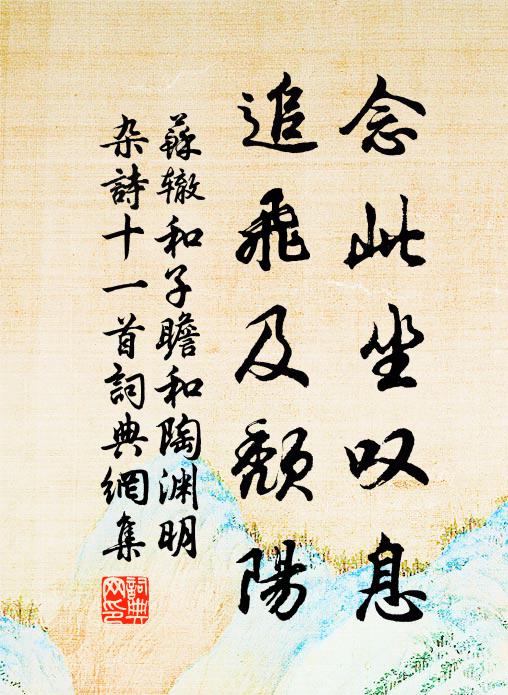 念此坐叹息
追飛及頹陽
蘇辙和子瞻和陶渊明
杂詩十一首詞典網集
詞典網印